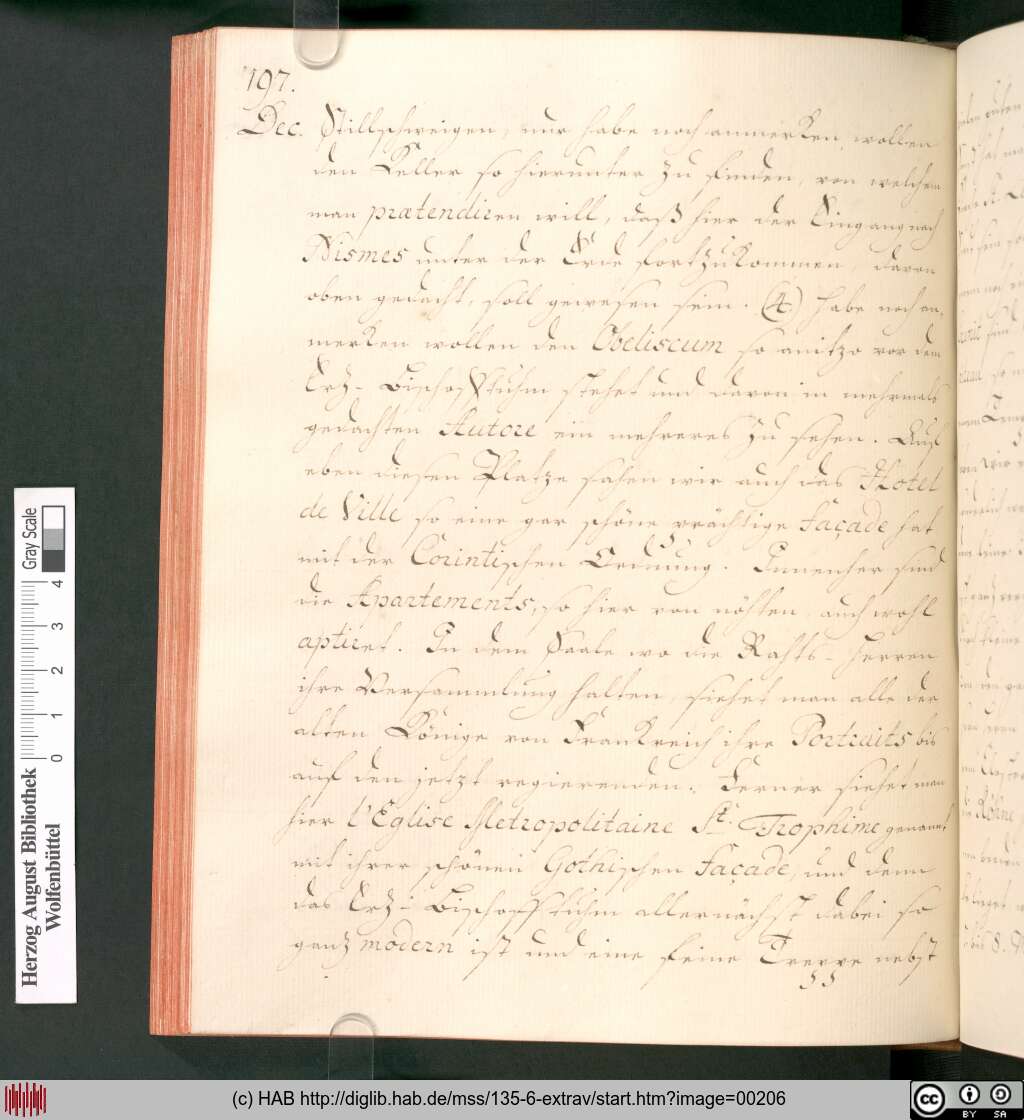 197.
Dec. Stillschweigen, nur habe noch anmerken wollen
den Keller so hierunter zu finden, von welchem
man prætendiren will, daß hier der Eingang nach
Nismes unter der Erde fortzukommen, davon
oben gedacht, soll gewesen sein. (4.) habe noch an-
merken wollen den Obeliscum so anitzo vor dem
Ertz-Bischofsthum stehet und davon in mehrmals
gedachten Autore ein mehreres zu sehen. Auf
eben diesen Platze sahen wir auch das Hotel
de Ville so eine gar schöne prächtige façade hat
mit der Corintischen Ordnung. Innenher sind
die Apartements, so hier von nöhten, auch wohl
aptiret. In dem Saale wo die Rahts-Herren
ihre Versammlung halten, siehet man alle der
alten Könige von Frankreich ihre Portraits bis
auf den jetzt regierenden. Ferner siehet man
hier l'Eglise Metropolitaine St. Trophime genannt
mit ihrer schönen Gothischen façade, und denn
das Ertz-Bischoffsthum allernächst dabei so
gantz modern ist und eine feine nebst
Herzog August Bibliothek
Wolfenbüttel
0 1 2 3 4
Gray Scale
(c) HAB http://diglib.hab.de/mss/135-6-extrav/start.htm?image=00206
cc
BY SA